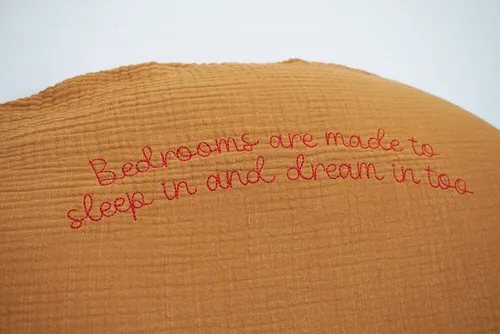 Bedrooms are made to
sleep in and dream in too